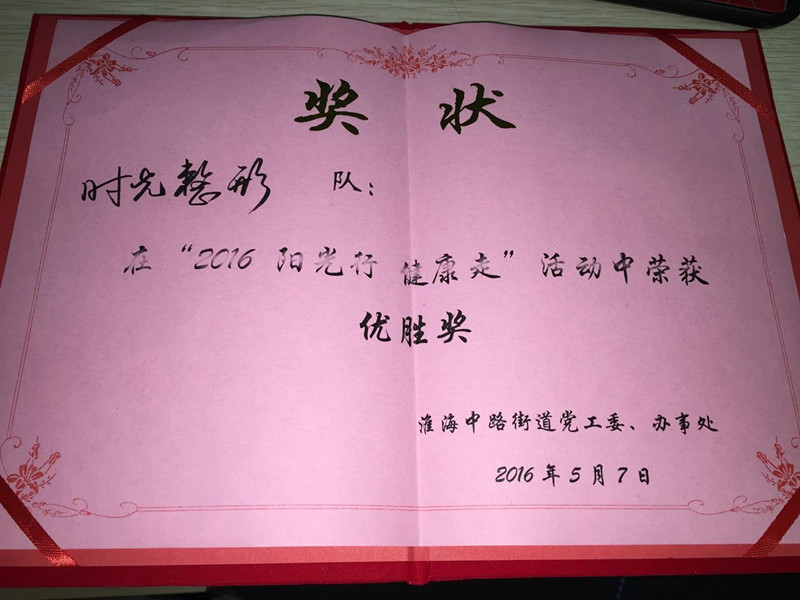 奖 状
时光整形 队：
在“2016 阳光行 健康走”活动中荣获
优胜奖
淮海中路街道党工委、办事处
2016 年 5 月 7 日